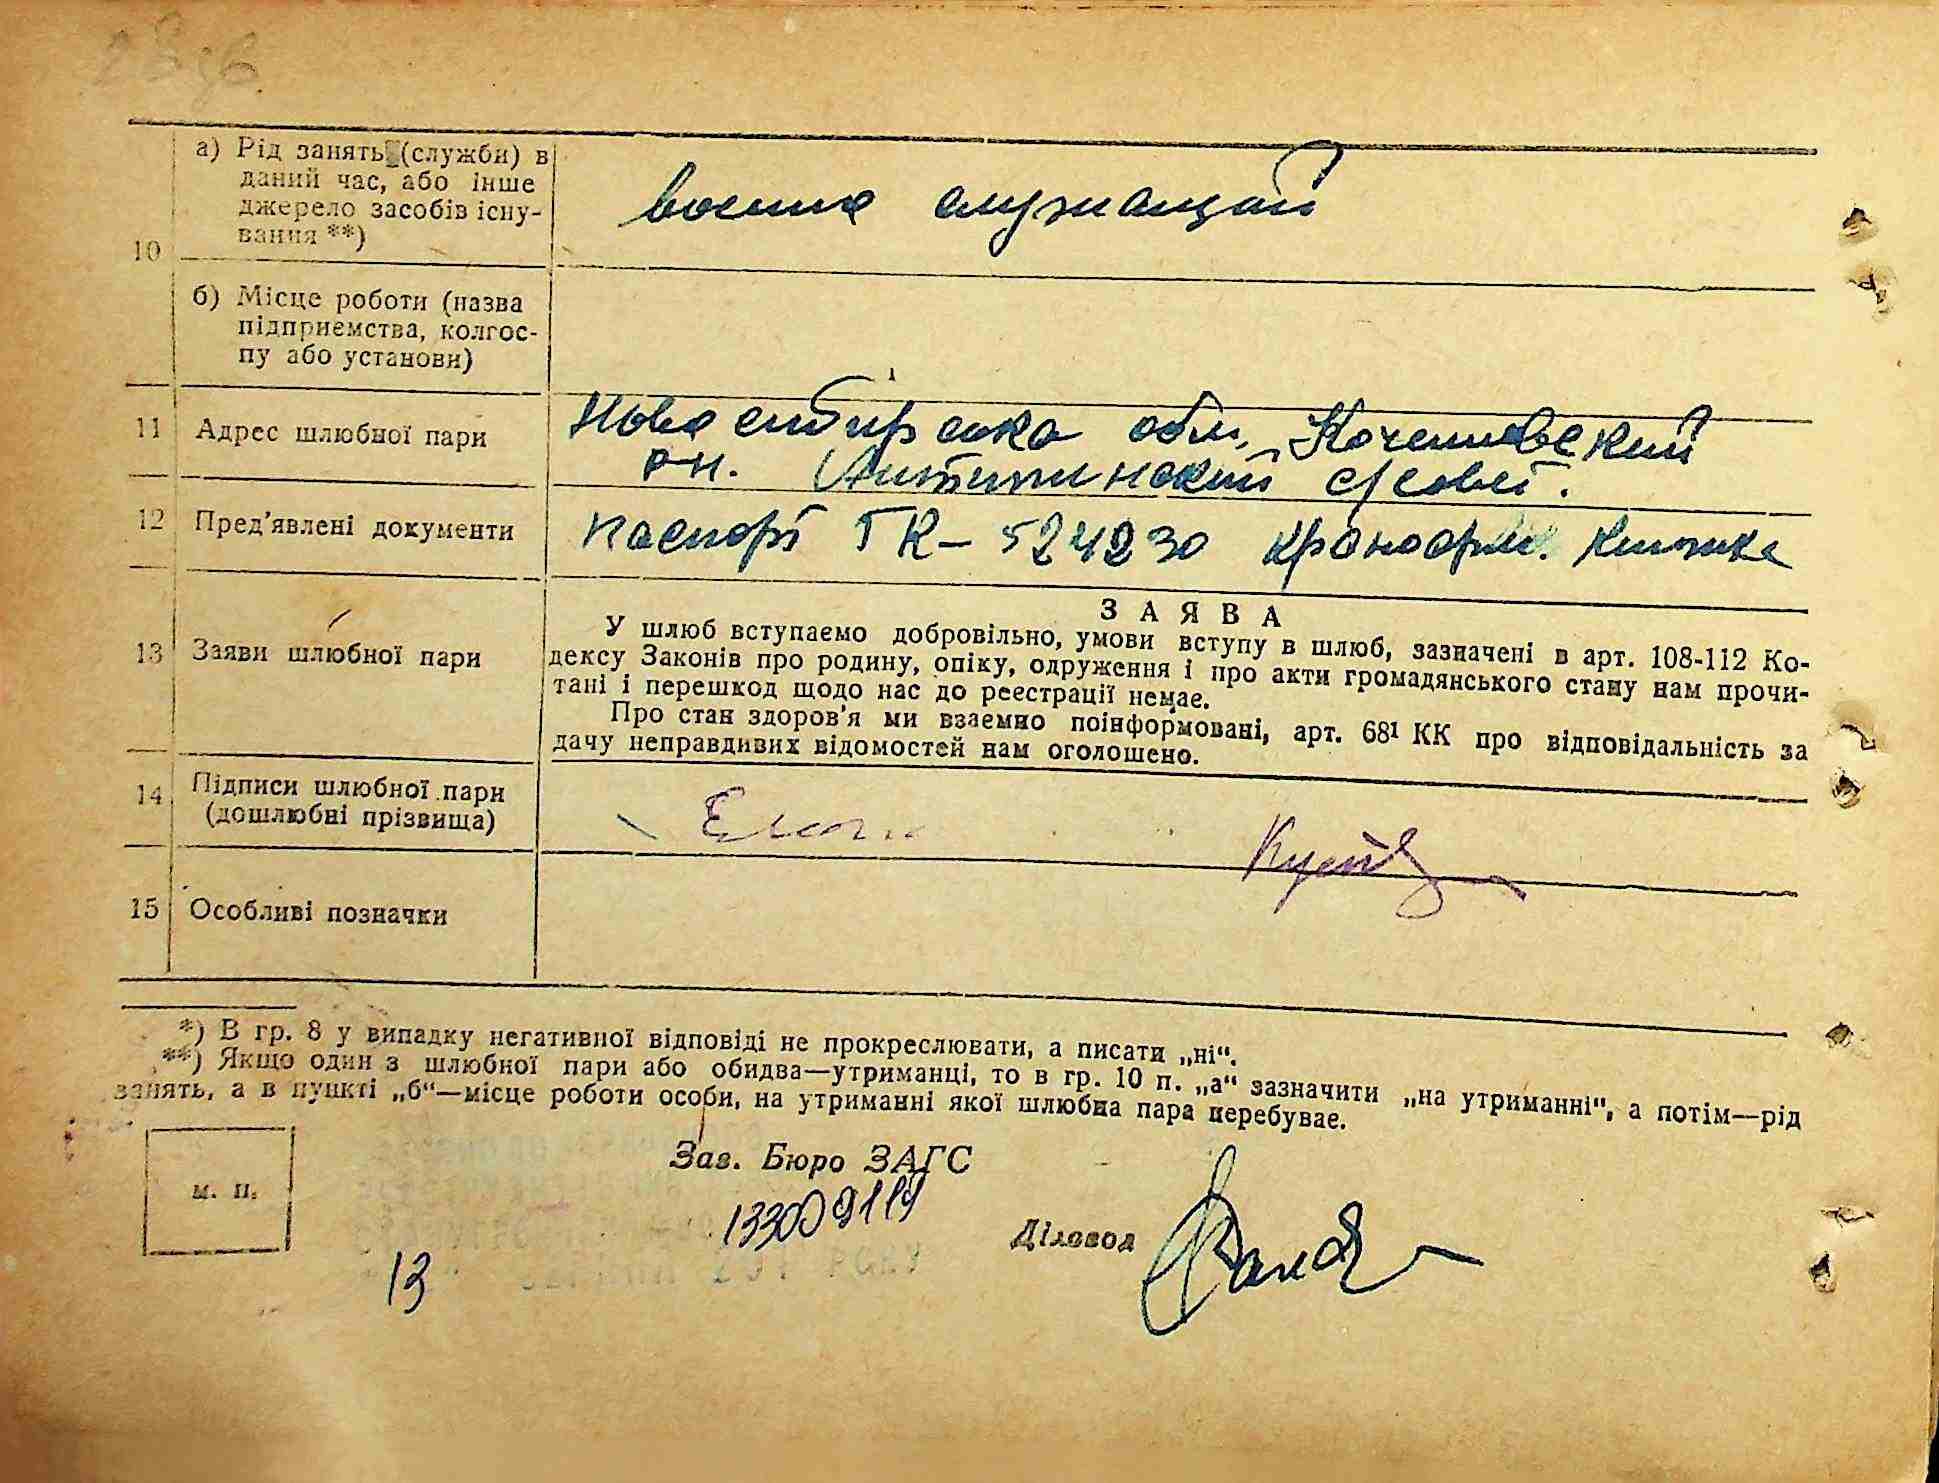 10
а) Рід занять (служби) в
даний час, або інше
джерело засобів існу-
вання **)
военно служащий
б) Місце роботи (назва
підприємства, колгос-
пу або установи)
11
Адрес шлюбної пари
Новосибирська обл. Коченивский
рн. с/совет.
12
Пред'явлені документи
паспорт ГК – 524230 краноарм. книжка
13
Заяви шлюбної пари
ЗАЯВА
У шлюб вступаємо добровільно, умови вступу в шлюб, зазначені в арт. 108-112 Ко-
дексу Законів про родину, опіку, одруження і про акти громадянського стану нам прочи-
тані і перешкод щодо нас до реєстрації немає.
Про стан здоров'я ми взаємно поінформовані, арт. 68¹ КК про відповідальність за
дачу неправдивих відомостей нам оголошено.
14
Підписи шлюбної пари
(дошлюбні прізвища)
15
Особливі позначки
*) В гр. 8 у випадку негативної відповіді не прокреслювати, а писати „ні“.
**) Якщо один з шлюбної пари або обидва—утриманці, то в гр. 10 п. „а“ зазначити „на утриманні“, а потім—рід
занять, а в пункті „б“—місце роботи особи, на утриманні якої шлюбна пара перебуває.
м. п.
Зав. Бюро ЗАГС
13300 9119
Діловод
13